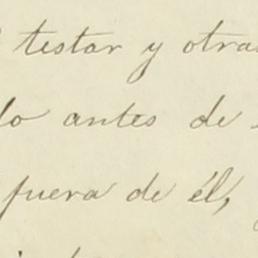 testar y otra
lo antes de
fuera de él,